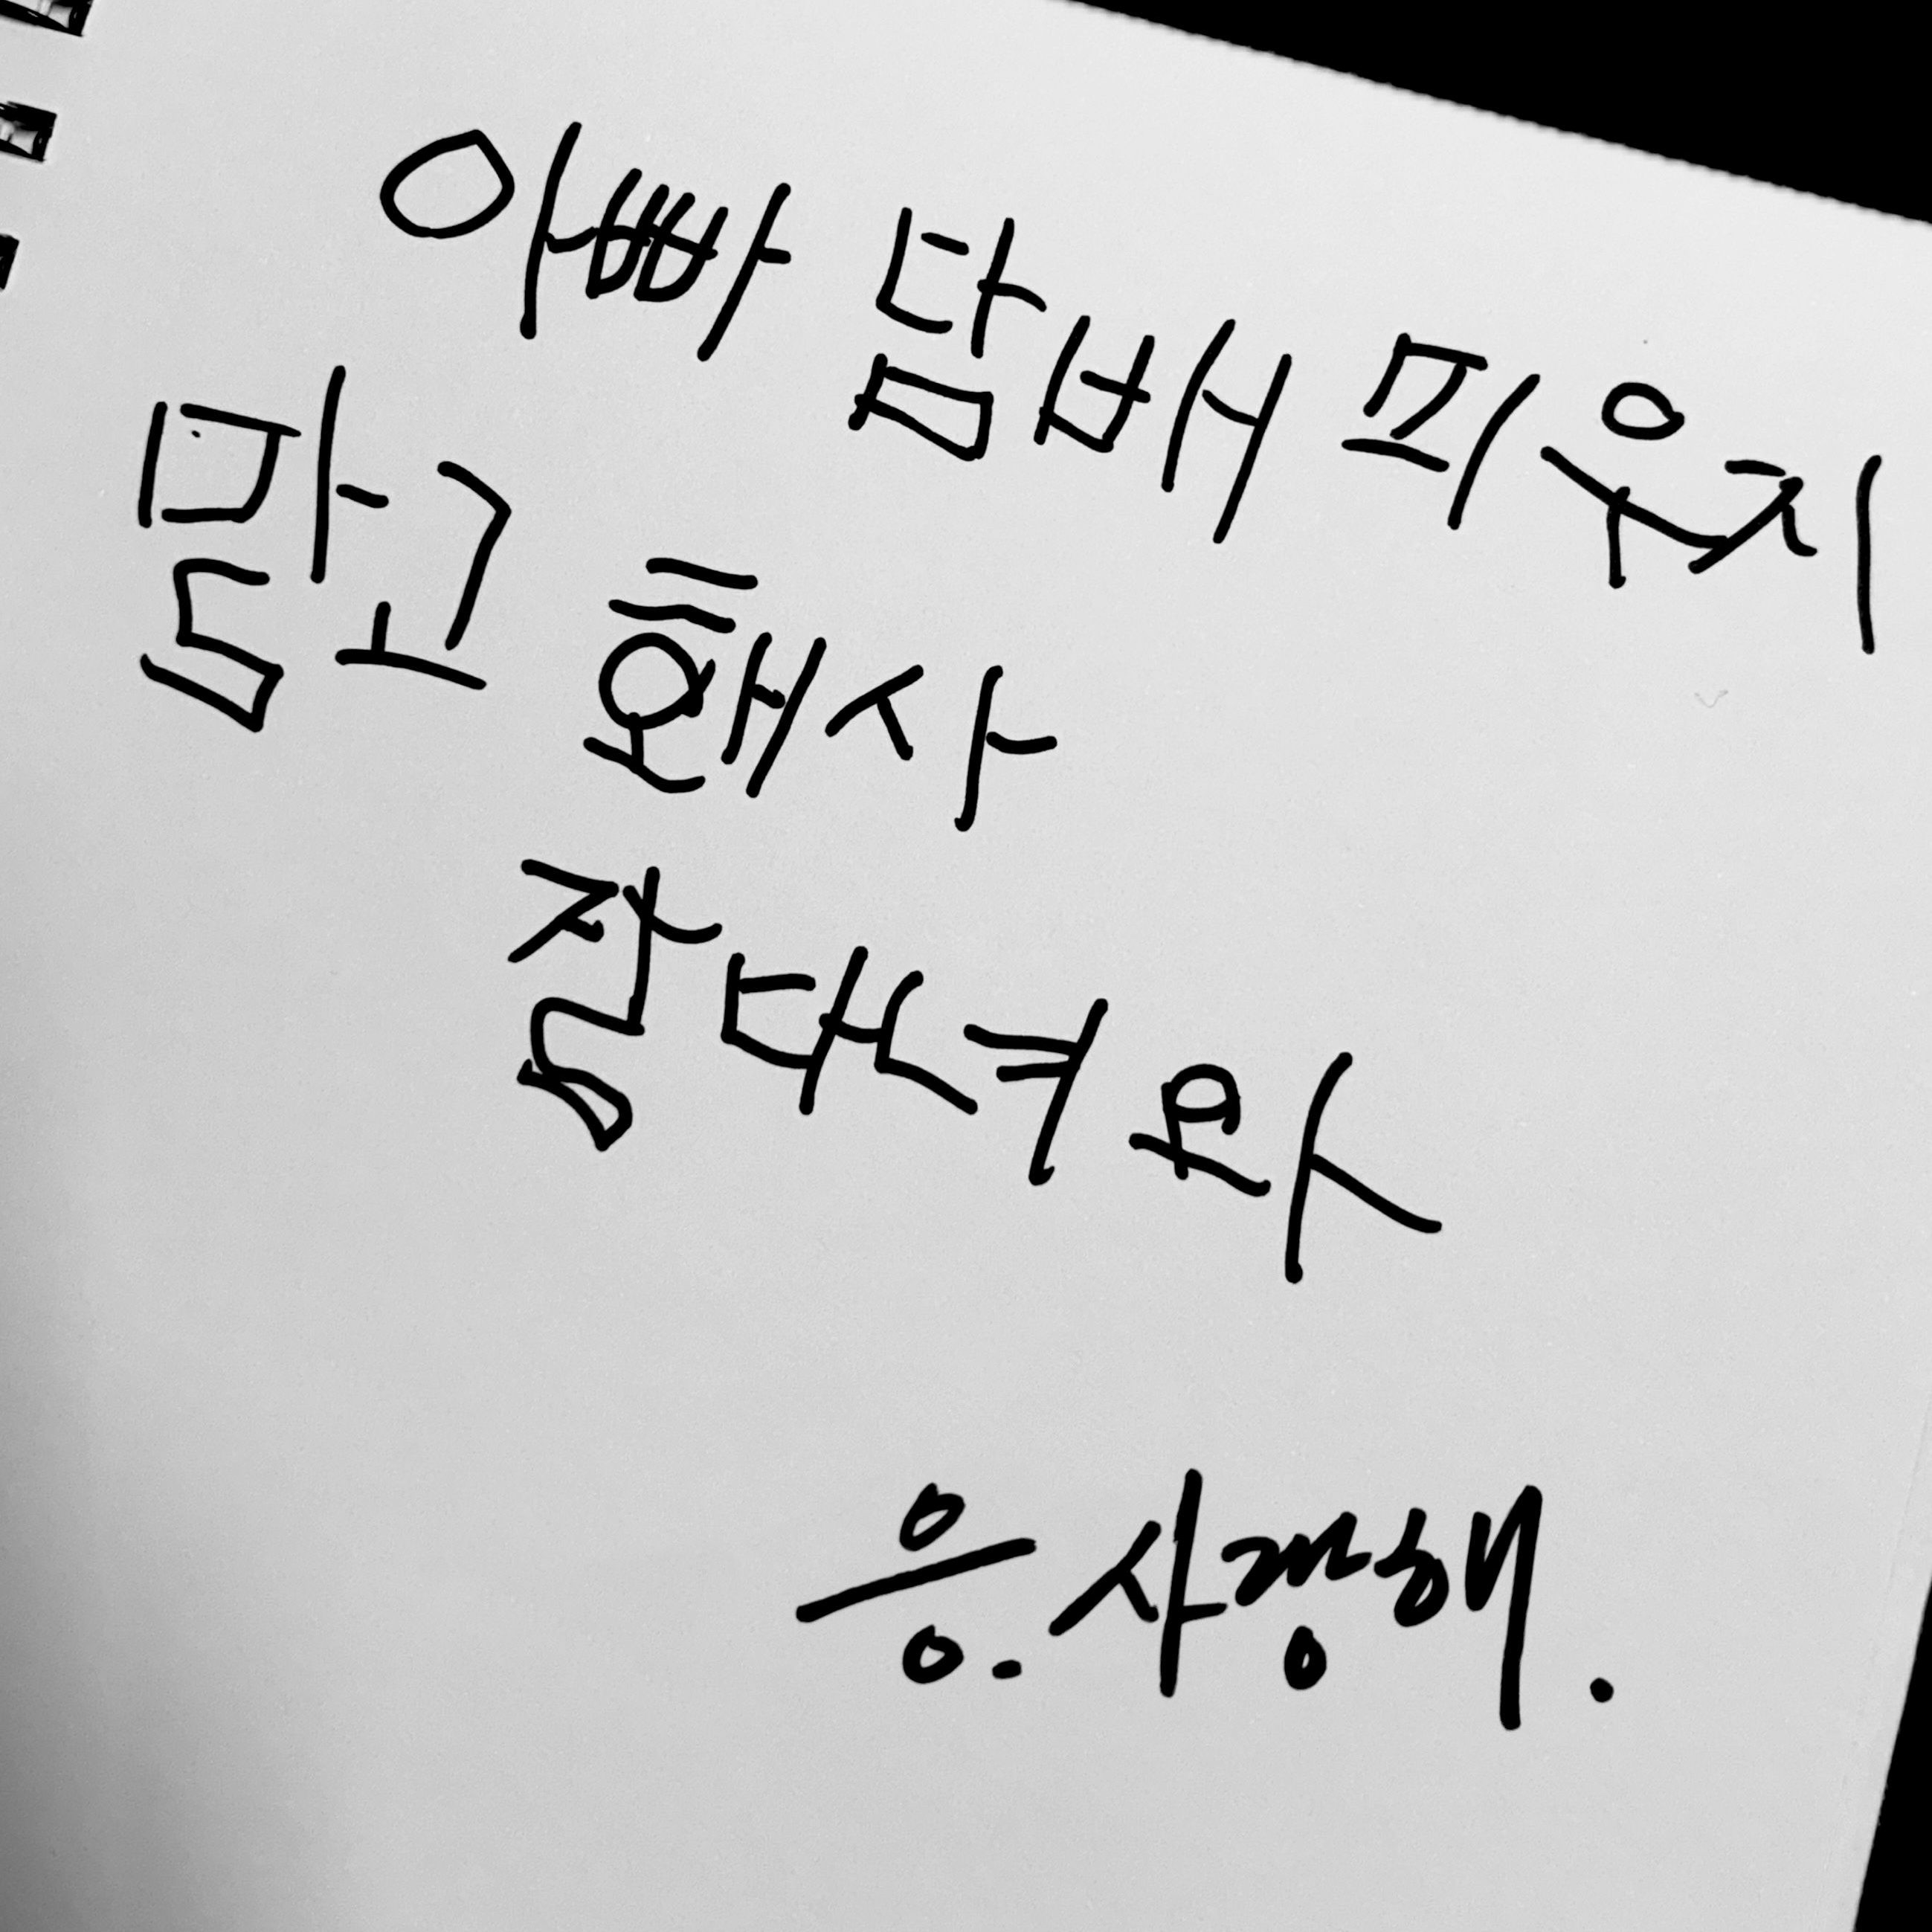 아빠 담배 피우지
맒고 홰사
잚다녀 와
응. 사랑해.